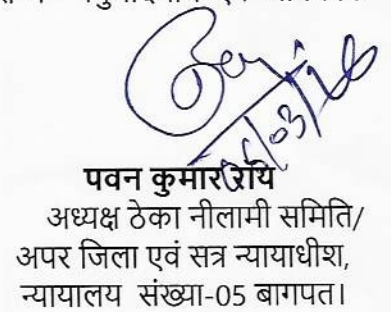 /03/26
पवन कुमार राय
अध्यक्ष ठेका नीलामी समिति/
अपर जिला एवं सत्र न्यायाधीश,
न्यायालय संख्या-05 बागपत।